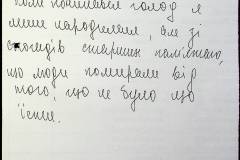 коли починався голод я
лише народилась, але зі
спогадів старших пам'ятаю,
що люди помирали від
того, що не було що
їсти.